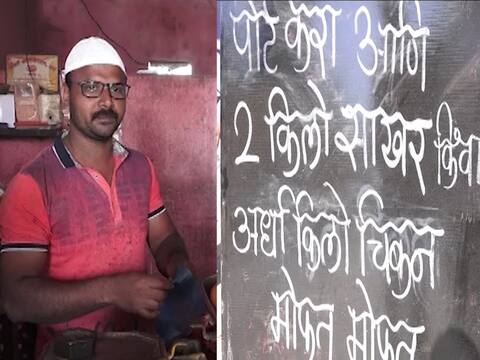 पोर्ट करा आणि
2 किलो साखर किंवा
अर्धा किलो चिकन
मोफत मोफत